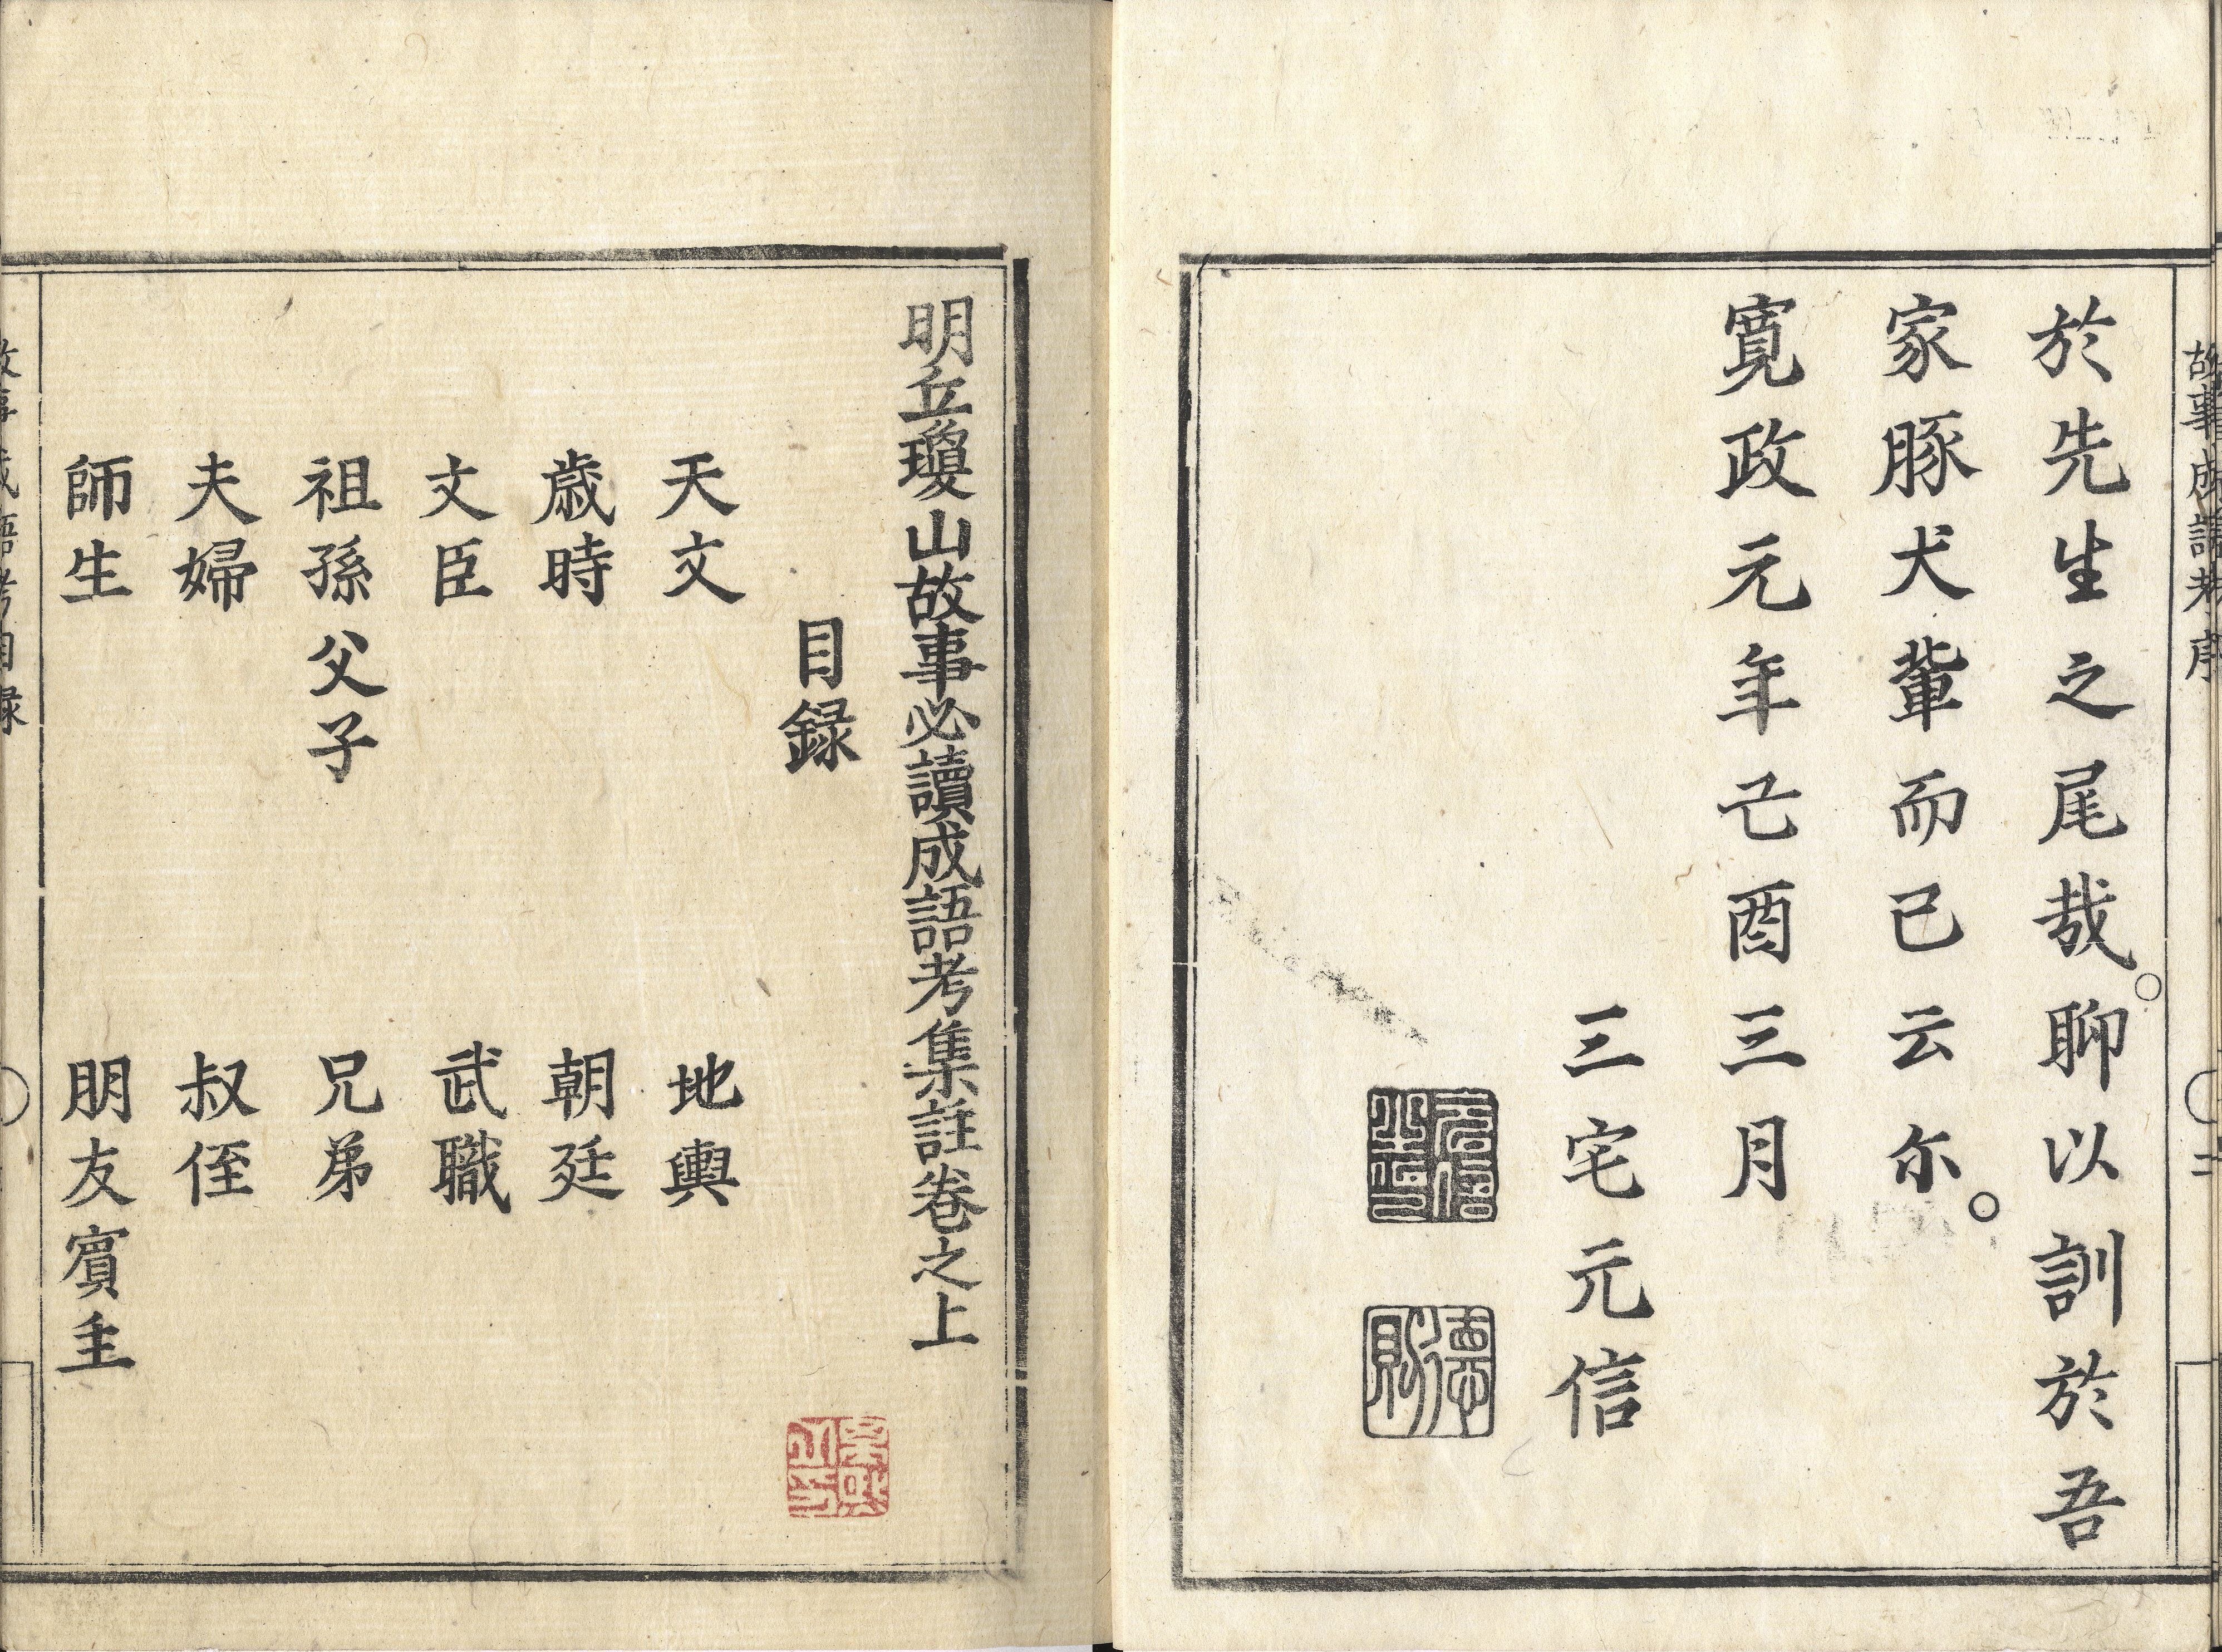 於先生之尾哉。聊以訓於吾
家豚犬輩而已云尔。
寛政元年己酉三月
三宅元信
元信
德則
故事成語考序
二
明丘瓊山故事必讀成語考集註卷之上
目録
天文 地輿
歳時 朝廷
文臣 武職
祖孫父子 兄弟
夫婦 叔侄
師生 朋友賓主
故事成語考目録